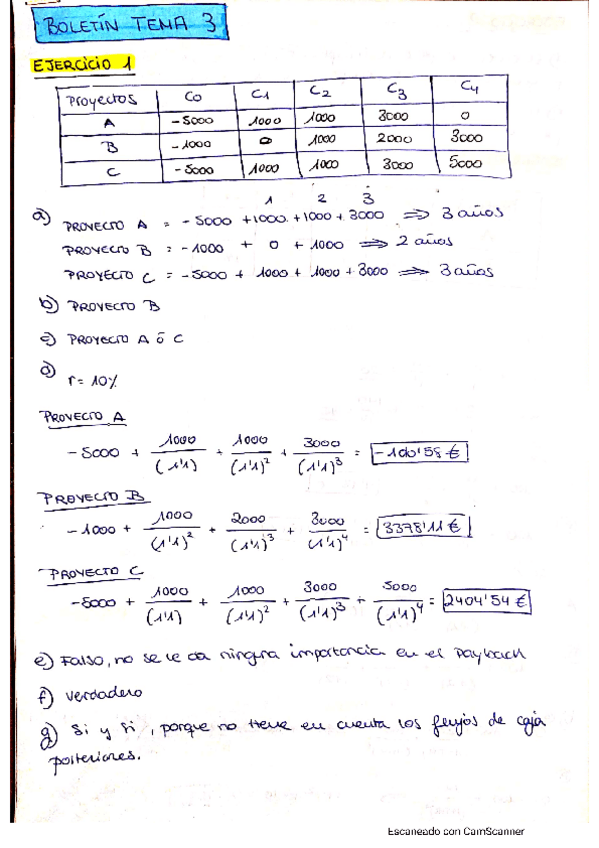 BOLETÍN TEMA 3
EJERCICIO 1
Proyectos C0 C1 C2 C3 C4
A -5000 1000 1000 3000 0
B -1000 0 1000 2000 3000
C -5000 1000 1000 3000 5000
1 2 3
a) PROYECTO A = -5000 +1000 +1000 + 3000 ⇒ 3 años
PROYECTO B = -1000 + 0 + 1000 ⇒ 2 años
PROYECTO C = -5000 + 1000 + 1000 + 3000 ⇒ 3 años
b) PROYECTO B
c) PROYECTO A ó C
d) r = 10%
PROYECTO A
-5000 + 1000/(1'1) + 1000/(1'1)² + 3000/(1'1)³ = -1010'58 €
PROYECTO B
-1000 + 1000/(1'1)² + 2000/(1'1)³ + 3000/(1'1)⁴ = 3378'11 €
PROYECTO C
-5000 + 1000/(1'1) + 1000/(1'1)² + 3000/(1'1)³ + 5000/(1'1)⁴ = 2404'54 €
e) Falso, no se le da ninguna importancia en el payback
f) verdadero
g) Si y si, porque no tiene en cuenta los flujos de caja
posteriores.
Escaneado con CamScanner